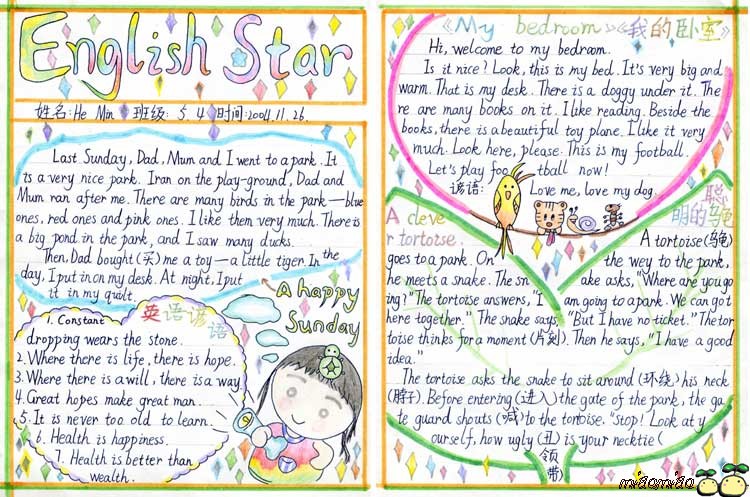 English Star
姓名: He Min 班级: 5.4 时间: 2004.11.26.
Last Sunday, Dad, Mum and I went to a park. It
is a very nice park. Iran on the play-ground, Dad and
Mum ran after me. There are many birds in the park — blue
ones, red ones and pink ones. I like them very much. There is
a big pond in the park, and I saw many ducks.
Then, Dad bought (买) me a toy — a little tiger. In the
day, I put in on my desk. At night, I put
it in my quilt.
A happy
Sunday
英语谚语
1. Constant
dropping wears the stone.
2. Where there is life, there is hope.
3. Where there is a will, there is a way
4. Great hopes make great man.
5. It is never too old to learn.
6. Health is happiness.
7. Health is better than
wealth.
《My bedroom》《我的卧室》
Hi, welcome to my bedroom.
Is it nice? Look, this is my bed. It's very big and
warm. That is my desk. There is a doggy under it. The
re are many books on it. I like reading. Beside the
books, there is a beautiful toy plane. I like it very
much. Look here, please. This is my football.
Let's play foo tball now!
谚语: Love me, love my dog.
A cleve
r tortoise.
聪
明的乌龟
A tortoise (乌龟)
goes to a park. On the wey to the park,
he meets a snake. The sn ake asks, "Where are you go
ing?" The tortoise answers, "I am going to a park. We can got
here together." The snake says, "But I have no ticket." The tor
toise thinks for a moment (片刻). Then he says, "I have a good
idea."
The tortoise asks the snake to sit around (环绕) his neck
(脖子). Before entering (进入) the gate of the park, the ga
te guard shouts (喊) to the tortoise. "Stop! Look at y
ourself, how ugly (丑) is your necktie (
领
带)
miāomiāo